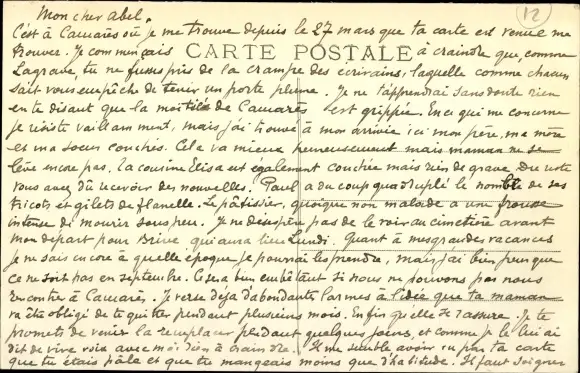 12
Mon cher Abel.
C'est à Camarès où je me trouve depuis le 27 mars que ta carte est venue me
trouver. Je commençais à craindre que, comme
CARTE POSTALE
Lagrave, tu ne fusses pris de la crampe des écrivains, laquelle comme chacun
sait vous empêche de tenir un porte plume. Je ne t'apprendrai sans doute rien
en te disant que la moitié de Camarès est grippée. En ce qui me concerne
je résiste vaillamment, mais j'ai trouvé à mon arrivée ici mon père, ma mère
et ma soeur couchés. Cela va mieux heureusement mais maman ne se
lève encore pas. La cousine Elisa est également couchée mais rien de grave. Du reste
vous avez dû recevoir des nouvelles. Paul a du coup quadruplé le nombre de ses
tricots et gilets de flanelle. Le pâtissier, quoique non malade a une frousse
intense de mourir sous peu. Je ne désespère pas de le voir au cimetière avant
mon départ pour Brive qui aura lieu Lundi. Quant à mes grandes vacances
je ne sais encore à quelle époque je pourrai les prendre, mais j'ai bien peur que
ce ne soit pas en septembre. Ce sera bien embêtant si nous ne pouvons pas nous
rencontrer à Camarès. Je verse déjà d'abondantes larmes à l'idée que ta maman
va être obligé de te quitter pendant plusieurs mois. Enfin qu'elle se rassure. Je te
promets de venir la remplacer pendant quelques jours, et comme je le lui ai
dit de vive voix avec moi rien à craindre. Il me semble avoir vu par ta carte
que tu étais pâle et que tu mangeais moins que d'habitude. Il faut soigner